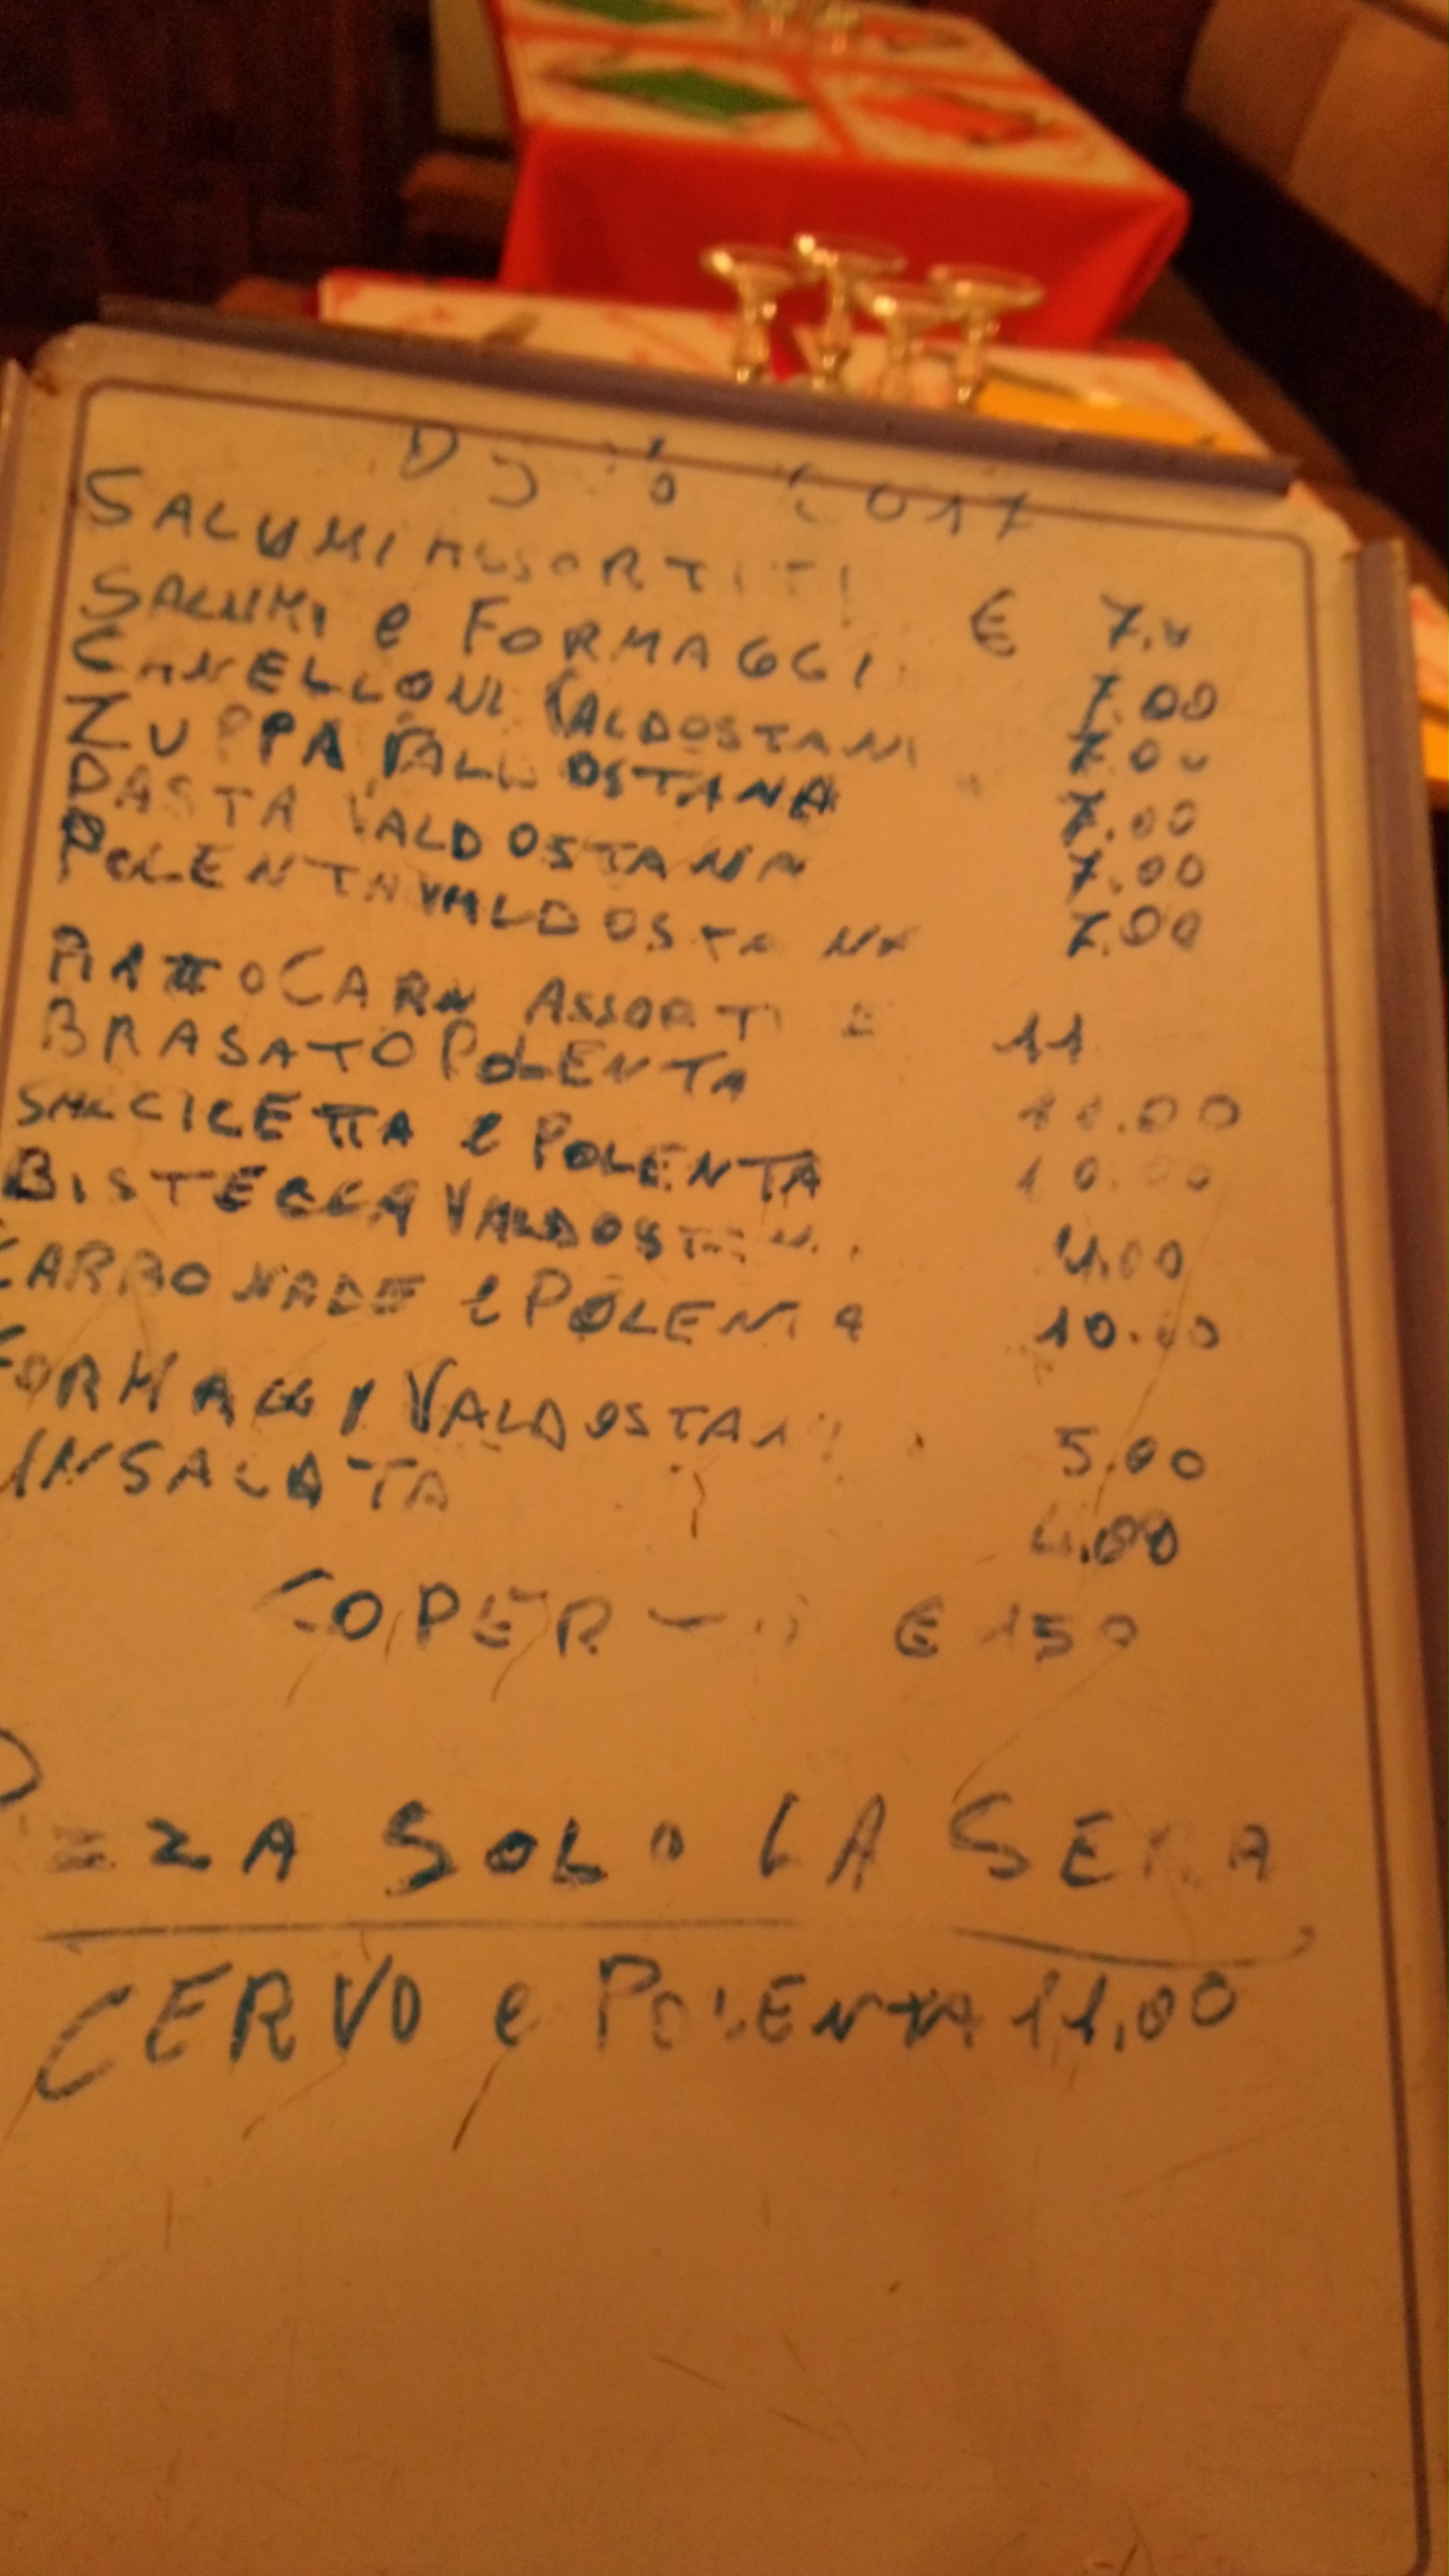 SALUMI ASSORTITI € 7.00
SALUMI e FORMAGGI 7.00
CANELLONI VALDOSTANI 7.00
ZUPPA VALDOSTANA 7.00
PASTA VALDOSTANA 7.00
POLENTA VALDOSTANA 7.00
PIATTO CARN ASSORTI E 11
BRASATO POLENTA 11.00
SALCICETTA e POLENTA 10.00
BISTECCA VALDOSTAN
CARBONADE e POLENTA 10.00
FORMAGGI VALDOSTANI 5.00
INSALATA 4.00
€ 150
SOLO LA SERA
CERVO e POLENTA 11,00